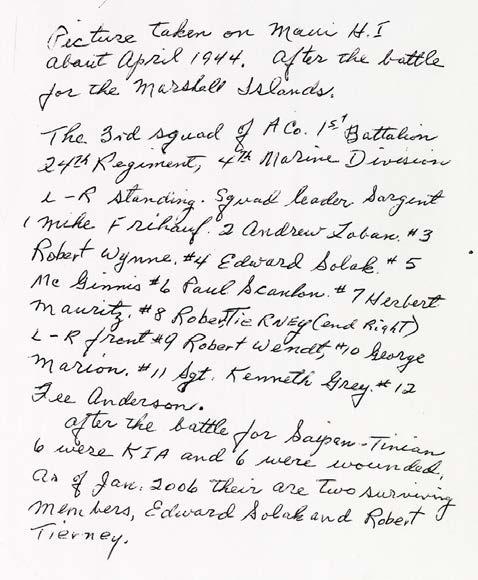 Picture taken on Maui H.I
about April 1944. After the battle
for the Marshall Islands.
The 3rd squad of A Co. 1st Battalion
24th Regiment, 4th Marine Division
L-R standing. Squad leader Sargent
1 Mike Frihauf. 2 Andrew Zaban. #3
Robert Wynne. #4 Edward Solak. #5
Mc Ginnis #6 Paul Scanlon. #7 Herbert
Mauritz. #8 Robert TieRNEY (end Right)
L-R front #9 Robert Wendt, #10 George
Marion. #11 Sgt. Kenneth Grey. #12
Fee Anderson.
After the battle for Saipan-Tinian
6 were KIA and 6 were wounded,
as of Jan. 2006 their are two surviving
members, Edward Solak and Robert
Tierney.